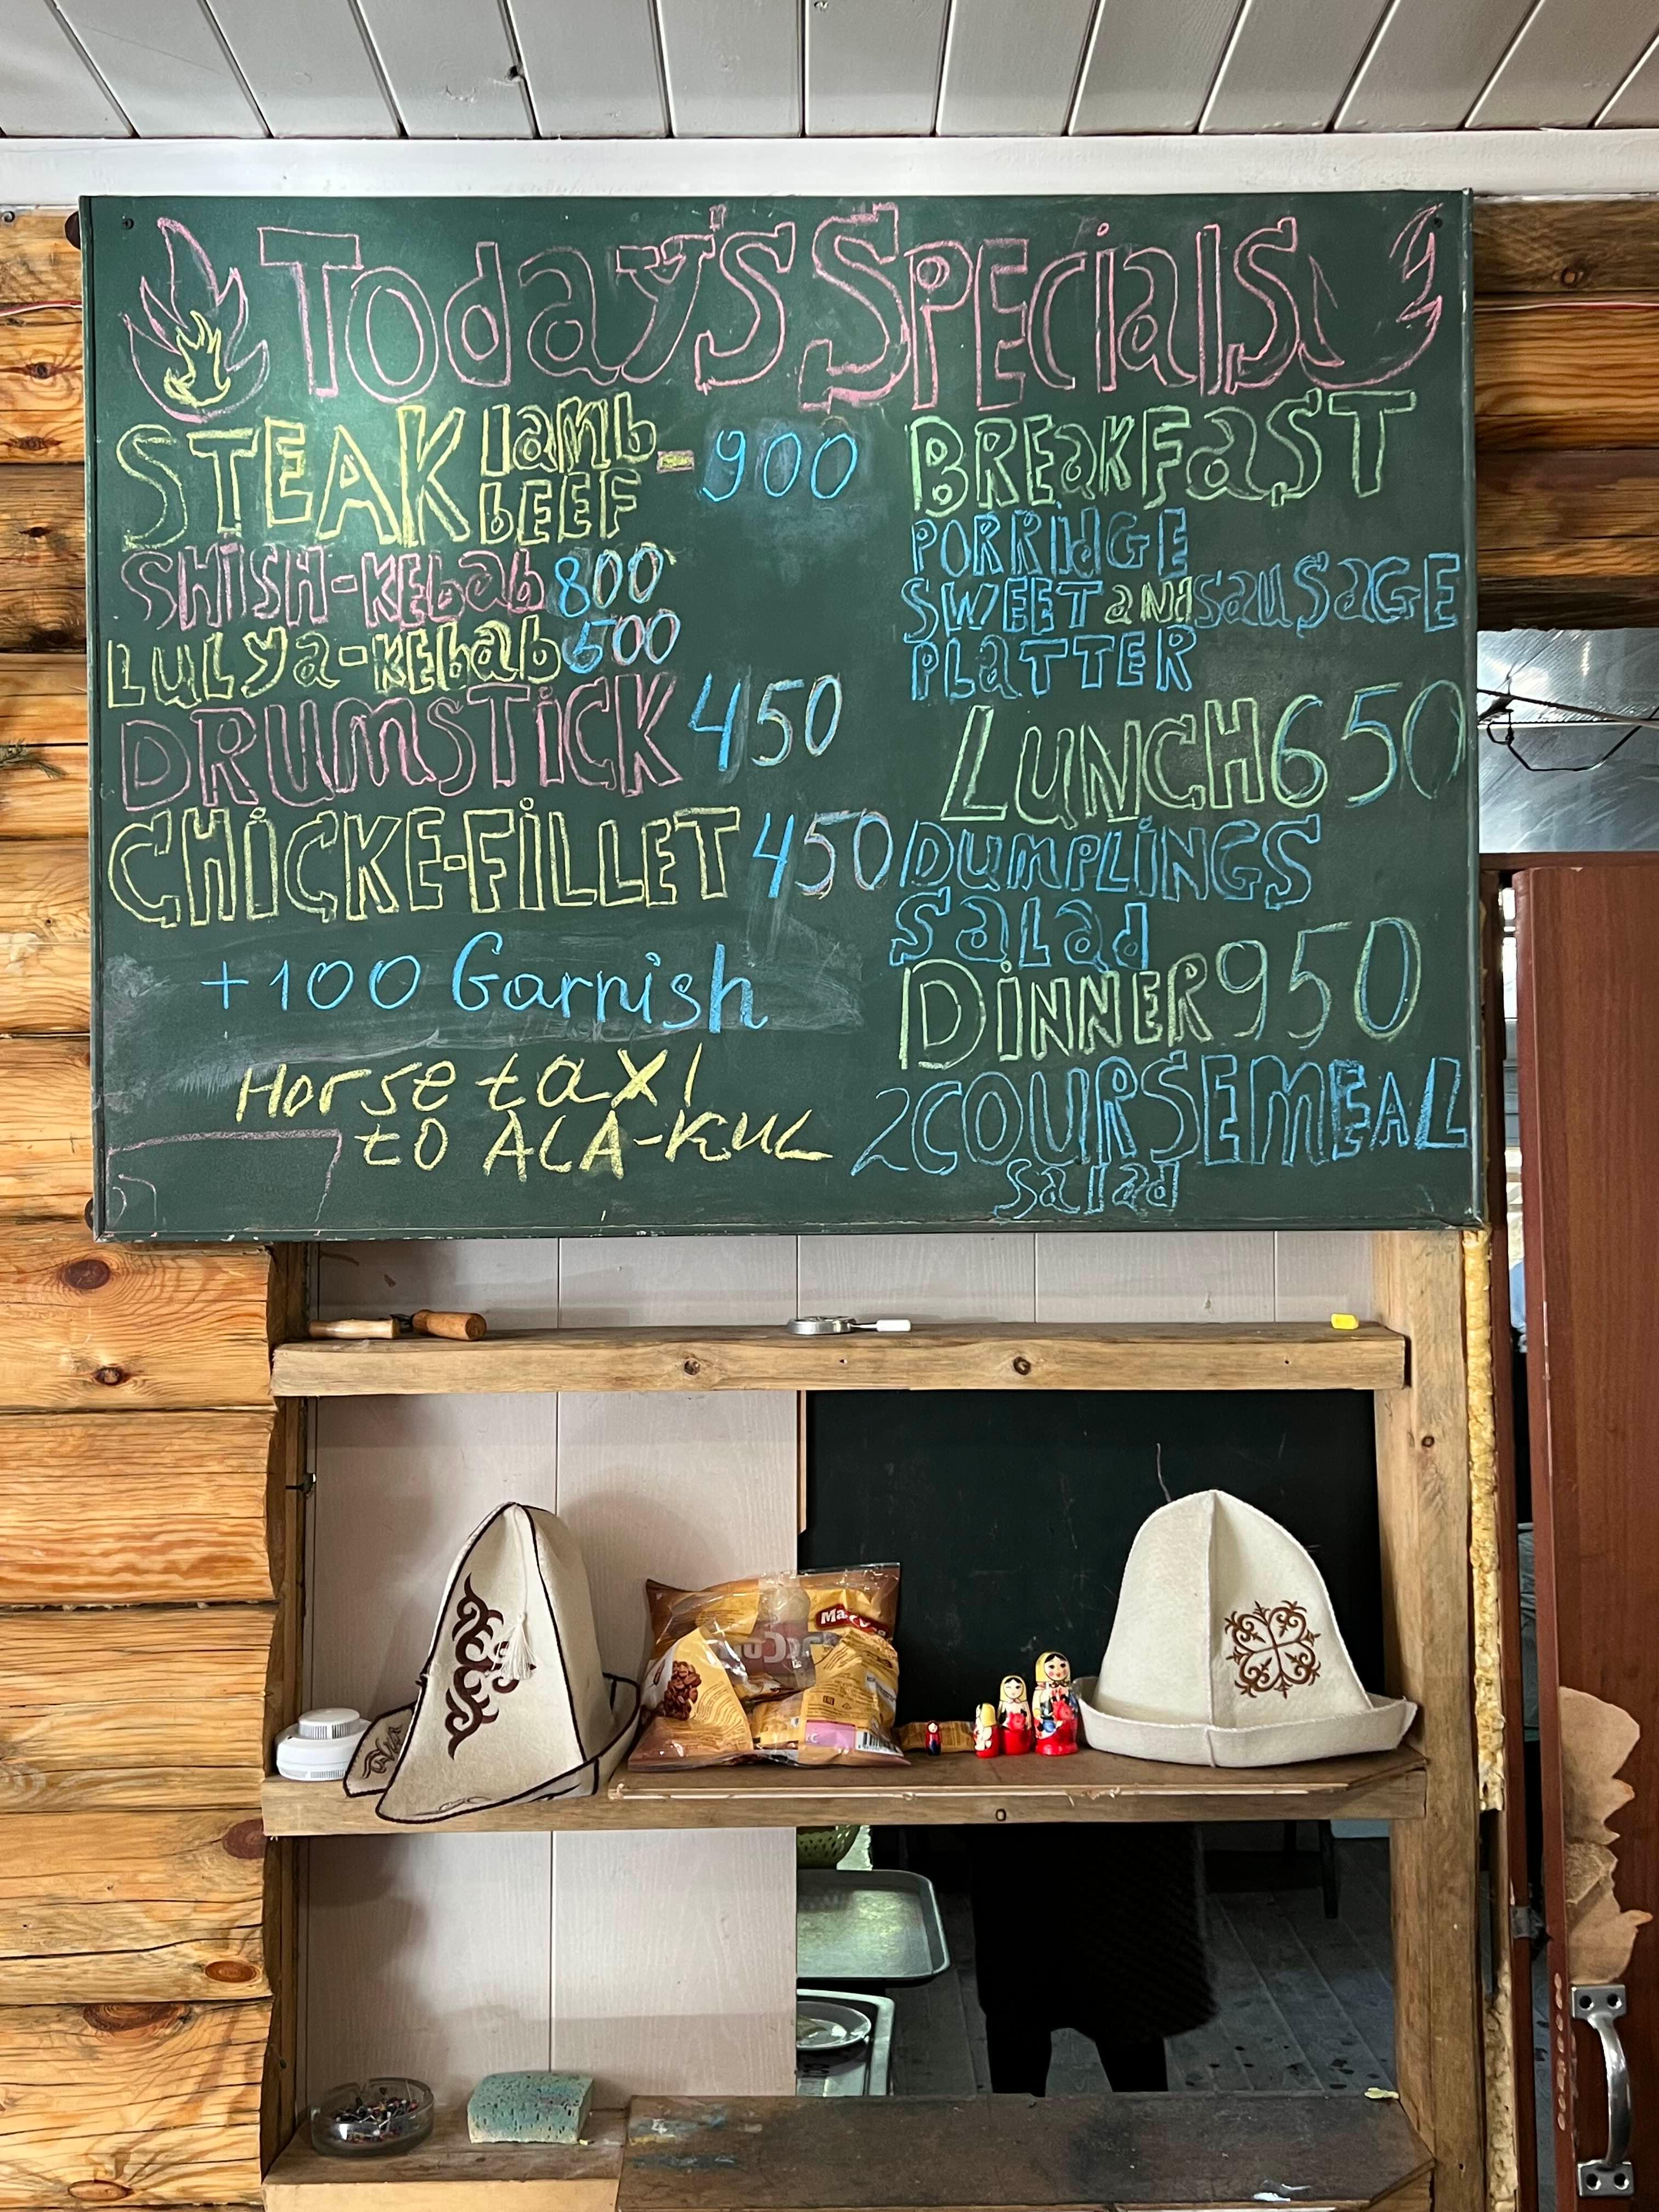 Today's Specials
STEAK lamb - 900
bEEF
SHiSH-KEbab 800
LULya-KEbab
DRUmSTiCK 450
CHiCKE-FiLLET 450
+100 Garnish
Horse taxi
to ALA-KUL
BREakFaST
PORRidGE
SWEET aNd SauSaGE
PLaTTER
LUNCH 650
DUmPLiNGS
SaLad
DiNNER 950
2 COURSE MEAL
Salad